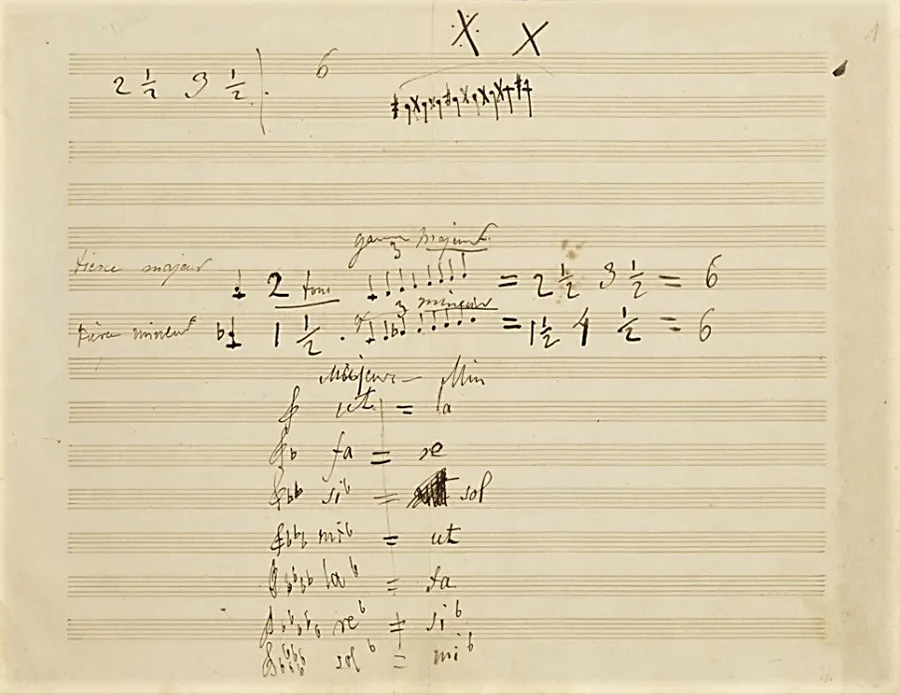 X X
2 1/2 3 1/2 6
gamme majeure
3
tierce majeur 2 tons = 2 1/2 3 1/2 = 6
3 mineur
tierce mineur b 1 1/2 = 1 1/2 4 1/2 = 6
Majeur – Min
ut = la
b fa = re
bb si b = sol
bbb mi b = ut
bbbb la b = fa
bbbbb re b = si b
bbbbbb sol b = mi b